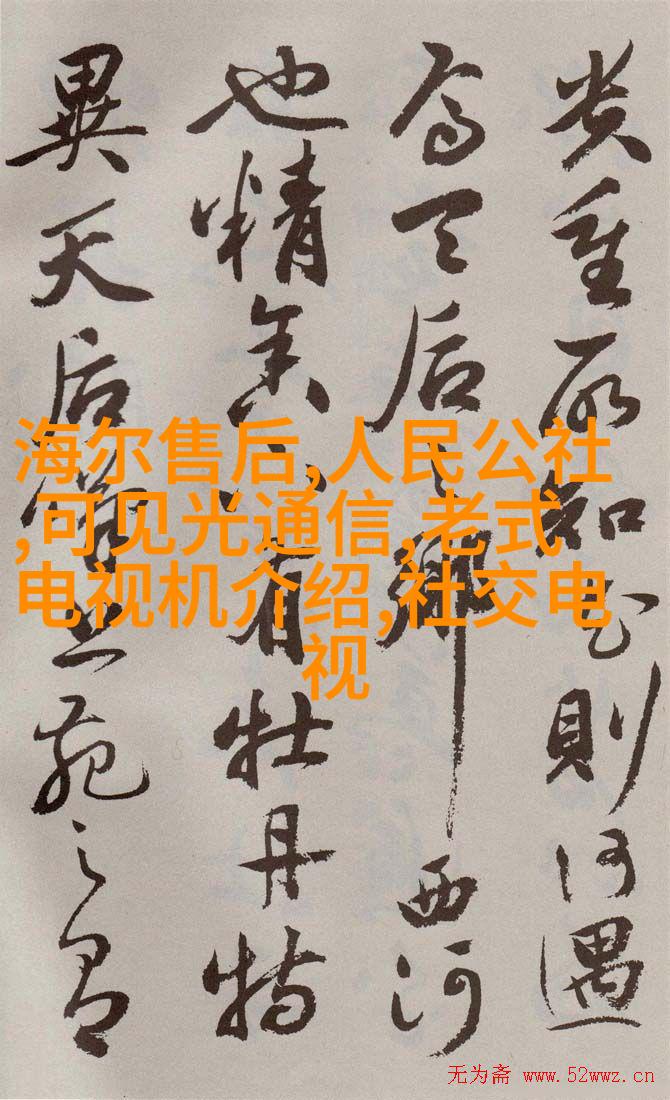 貴重所知花則何遇
焉天后之鄉西河
也精舍下有牡丹特
異天后歎上苑之有
海尔售后,人民公社
,可见光通信,老式
电视机介绍,社交电
视
无为斋 www.52wwz.cn